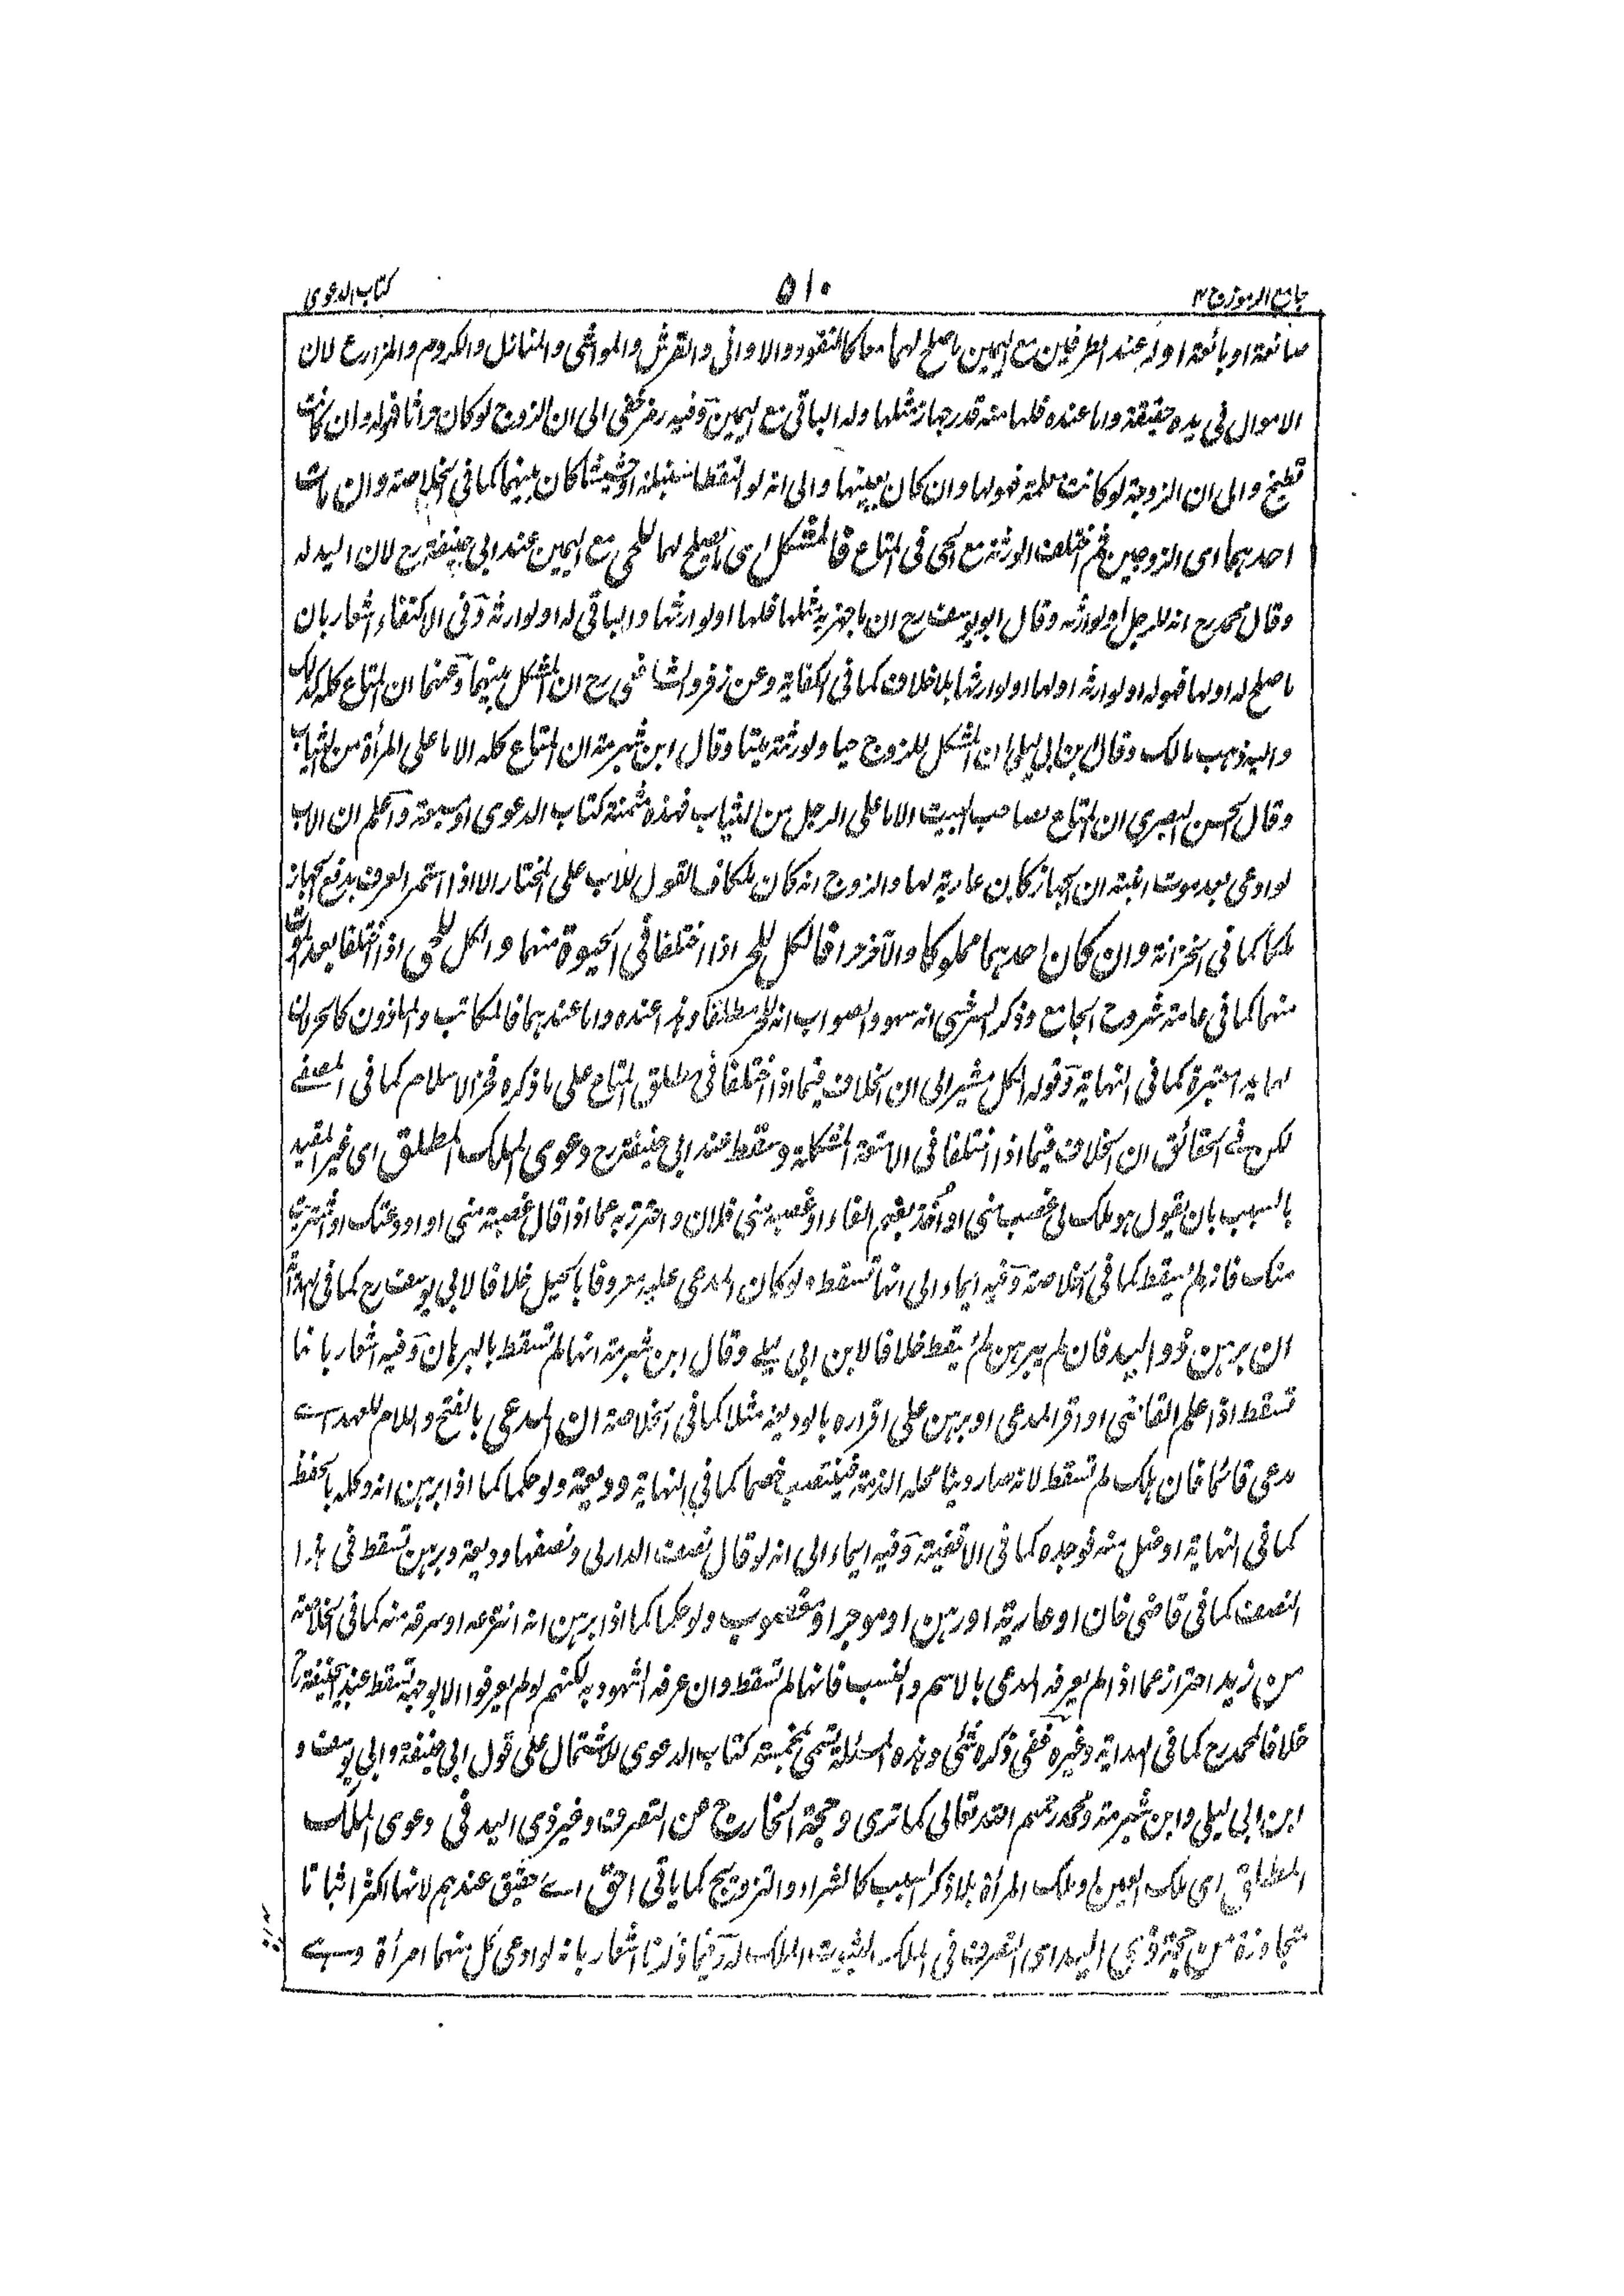 جامع الرموز ج ٢
٥١٠
كتاب الدعوى
صانعة او بائعة او له عند الطرفين مع اليمين ما صلح لهما معا كالنقود والاواني والفرش والمواشي والمنازل والكروم والمزارع لان
الاموال في يده حقيقة واما عنده فلها منه قدر جهاز مثلها وله الباقي مع اليمين وفيه رمز خفي الى ان الزوج لو كان حراثا فهو له وان كانت
تطبخ والى ان الزوجة لو كانت معلمة فهو لها وان كان بينهما والى انه لو التقطا سنبلة او حشيشا كان بينهما كما في الخلاصة وان مات
احدهما اى الزوجين ثم اختلفت الورثة مع الحى فى المتاع فالمشكل اى ما يصلح لهما للحى مع اليمين عند ابي حنيفة رح لان اليد له
وقال محمد رح انه للرجل او لوارثه وقال ابو يوسف رح ان ما يجهز به مثلها فلها او لوارثها والباقي له او لوارثه وفى الاكتفاء اشعار بان
ما صلح له او لها فهو له او لوارثه او لها او لوارثها بلا خلاف كما فى الكفاية وعن زفر والشافعى رح ان المشكل بينهما وعنهما ان المتاع كله كذلك
واليه ذهب مالك وقال ابن ابى ليلى ان المشكل للزوج حيا ولورثته ميتا وقال ابن شبرمة ان المتاع كله الا ما على المرأة من الثياب
وقال الحسن البصرى ان المتاع لصاحب البيت الا ما على الرجل من الثياب فهذه مثمنة كتاب الدعوى او سبعة واعلم ان الاب
لو ادعى بعد موت ابنته ان الجهاز كان عارية لها والزوج انه كان ملكا فالقول للاب على المختار الا اذا استمر العرف بدفع الجهاز
ملكا كما فى الخزانة وان كان احدهما مملوكا والآخر حرا فالكل للحر اذا اختلفا فى الحيوة منهما والكل للحى اذا اختلفا بعد الموت
منهما كما فى عامة شروح الجامع وذكر السرخسى انه سهو والصواب انه للحر مطلقا وهذا عنده واما عندهما فالمكاتب والماذون كالحر لان
لهما يدا معتبرة كما فى النهاية وقوله الكل مشير الى ان الخلاف فيما اذا اختلفا فى مطلق المتاع على ما ذكره فخر الاسلام كما فى المصفى
لكن فى الحقائق ان الخلاف فيما اذا اختلفا فى الامتعة المشكلة وسقط عند ابى حنيفة رح دعوى الملك المطلق اى غير المقيد
بالسبب بان يقول هو ملك لى غصب منى او اخذ بغير القاء او غصبه منى فلان واحترز به عما اذا قال غصبته منى او اودعتك او اشتريته
منك فانه لم يسقط كما فى الخلاصة وفيه ايماء الى انها تسقط ولو كان المدعى عليه معروفا بالحيل خلافا لابى يوسف رح كما فى الهداية
ان برهن ذو اليد فان لم يبرهن لم يسقط خلافا لابن ابى ليلى وقال ابن شبرمة انها لم تسقط بالبرهان وفيه اشعار بانها
تسقط اذا علم القاضى او اقر المدعى او برهن على اقراره بالوديعة مثلا كما فى الخلاصة ان المدعى بالفتح واللام للعهد اى
مدعى قائما فان هلك لم تسقط لانه صار دينا محله الذمة فينتصب خصما كما فى النهاية وديعة ولو حكما كما اذا برهن انه وكله بالحفظ
كما فى النهاية او ضل منه فوجده كما فى الاقضية وفيه ايماء الى انه لو قال نصف الدار لى ونصفها وديعة وبرهن تسقط فى هذا
النصف كما فى قاضى خان او عارية او رهن او موجر او مغصوب ولو حكما كما اذا برهن انه انتزعه او سرقه منه كما فى الخلاصة
من زيد احتراز عما اذا لم يعرفه المدعى بالاسم والنسب فانها لم تسقط وان عرفه الشهود به لكنهم لو لم يعرفوا الا بوجهه تسقط عند ابى حنيفة رح
خلافا لمحمد رح كما فى الهداية وغيره ففى ذكره شئ وهذه المسئلة تسمى مخمسة كتاب الدعوى للاشتمال على قول ابى حنيفة وابى يوسف و
ابن ابى ليلى وابن شبرمة ومحمد رحمهم الله تعالى كما ترى وحجة الخارج عن التصرف وغير ذى اليد فى دعوى الملك
المطلق اى ملك العين او ملك المرأة بلا ذكر السبب كالشراء والتزويج كما ياتى احق اى حقيق عندهم لانها اكثر اثباتا
متجاوزة من حجة ذى اليد اى التصرف فى الملك المثبت الملك له وفيما ذكرنا اشعار بانه لو ادعى كل منهما امرأة وهى